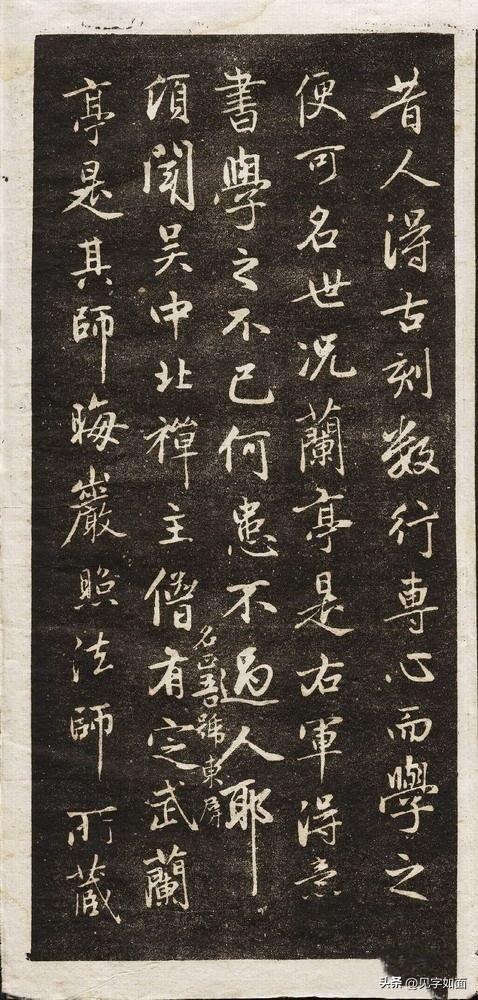 昔人得古刻数行專心而學之
便可名世况蘭亭是右軍得意
書學之不已何患不過人耶
頃聞吴中北禪主僧有定武蘭
名正吾號東屏
亭是其師晦巖照法師所藏
头条 @见字如面